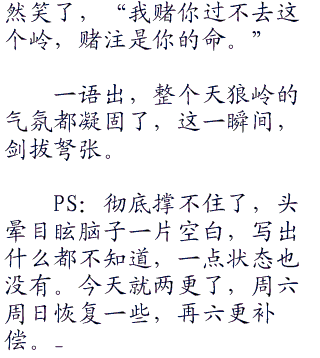 然笑了，“我赌你过不去这
个岭，赌注是你的命。”
一语出，整个天狼岭的
气氛都凝固了，这一瞬间，
剑拔弩张。
PS：彻底撑不住了，头
晕目眩脑子一片空白，写出
什么都不知道，一点状态也
没有。今天就两更了，周六
周日恢复一些，再六更补
偿。_